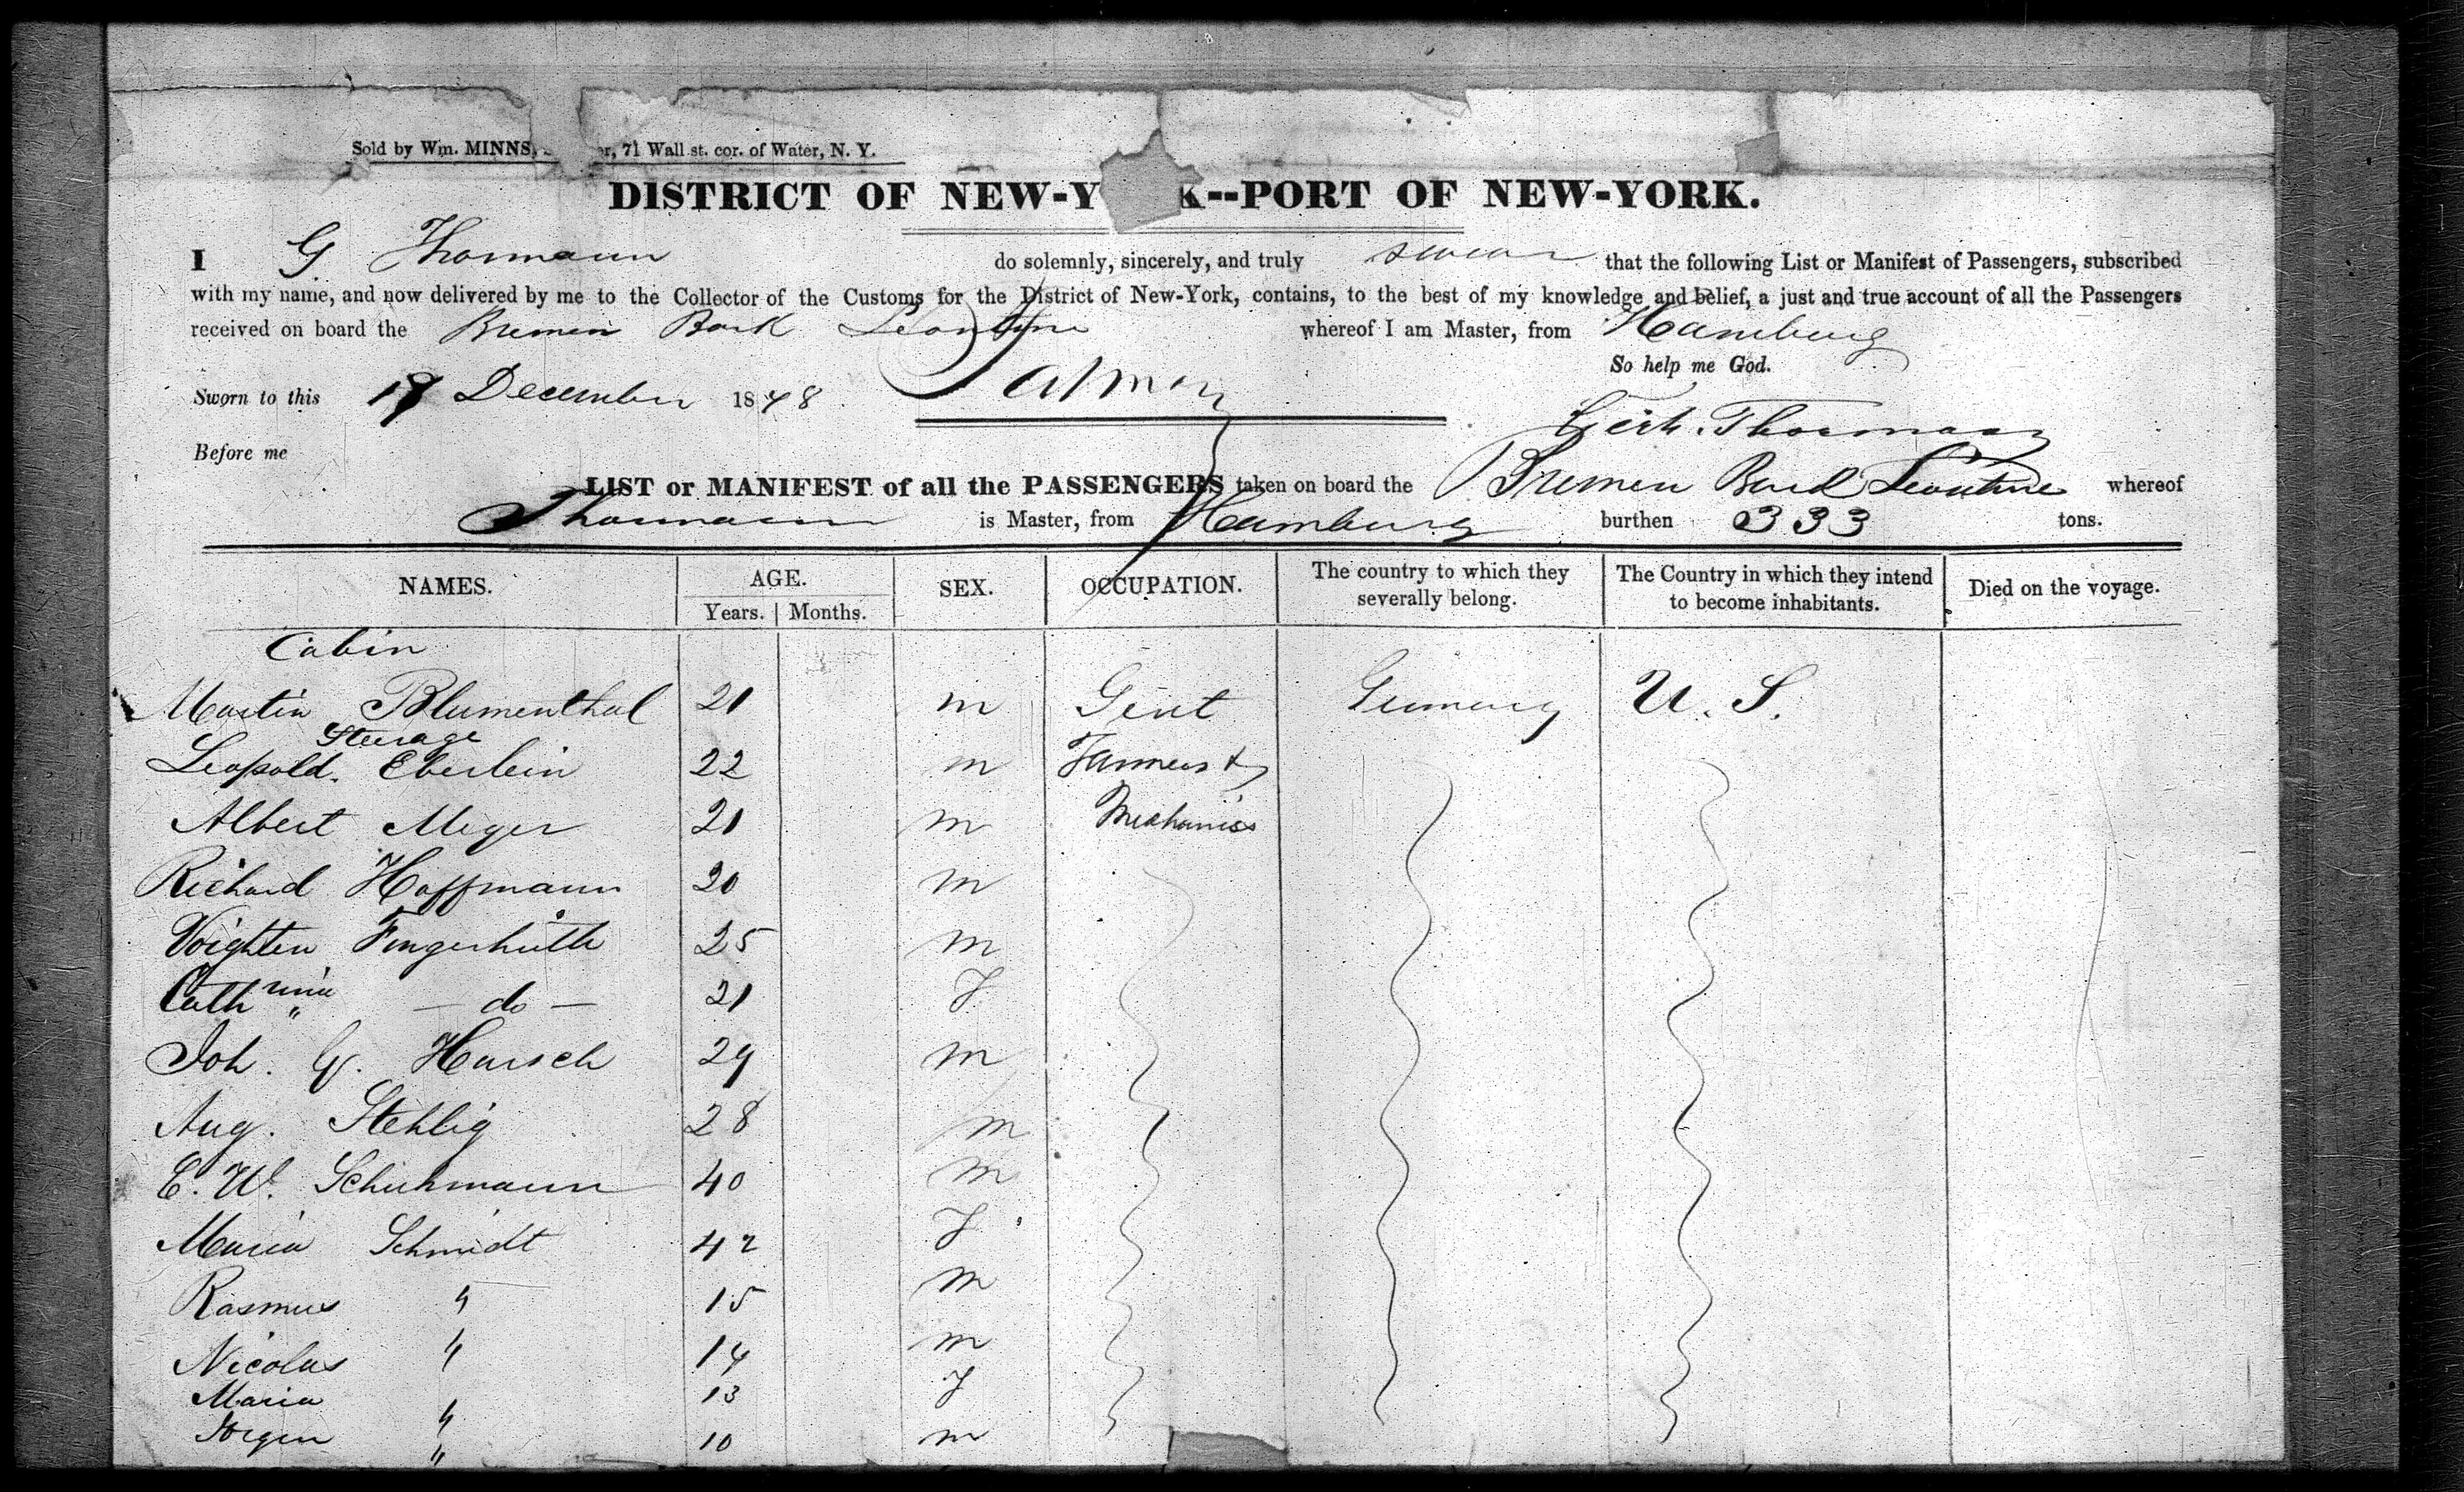 Sold by Wm. MINNS, er, 71 Wall st. cor. of Water, N. Y.
DISTRICT OF NEW-Y K--PORT OF NEW-YORK.
I G. Thormann do solemnly, sincerely, and truly swear that the following List or Manifest of Passengers, subscribed
with my name, and now delivered by me to the Collector of the Customs for the District of New-York, contains, to the best of my knowledge and belief, a just and true account of all the Passengers
received on board the Bremen Bark Leontine whereof I am Master, from Hamburg
So help me God.
Sworn to this 19 December 1848
Thormann
Before me
LIST or MANIFEST of all the PASSENGERS taken on board the Bremen Bark Leontine whereof
Thormann is Master, from Hamburg burthen 333 tons.
NAMES. AGE. Years. Months. SEX. OCCUPATION. The country to which they severally belong. The Country in which they intend to become inhabitants. Died on the voyage.
Cabin
Martin Blumenthal 21 m Gent Germany U. S.
Steerage
Leopold Eberlein 22 m Farmers &
Albert Meyer 21 m Mechanics
Richard Hoffmann 20 m
Fingerhuth 25 m
Cath rina " — do — 21 f
Joh. G. Harsch 29 m
Aug. Stehlig 28 m
C. W. Schuhmann 40 m
Maria Schmidt 42 f
Rasmus " 15 m
Nicolas " 14 m
Maria " 13 f
Jorgen " 10 m